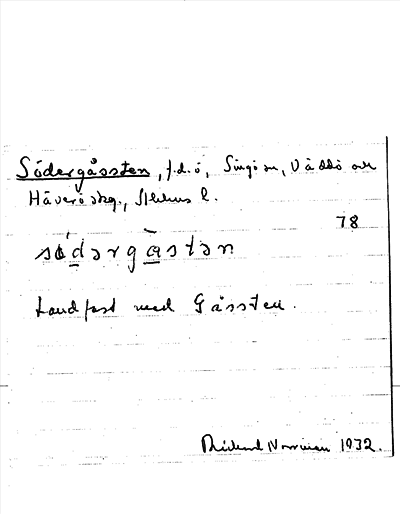 Södergåssten, f.d.ö, Singö sn, Väddö och
Häverö skg., Sthlms l.
78
sö̀dərgåstən
Landfast med Gåssten.
Rickard Norrman 1932.